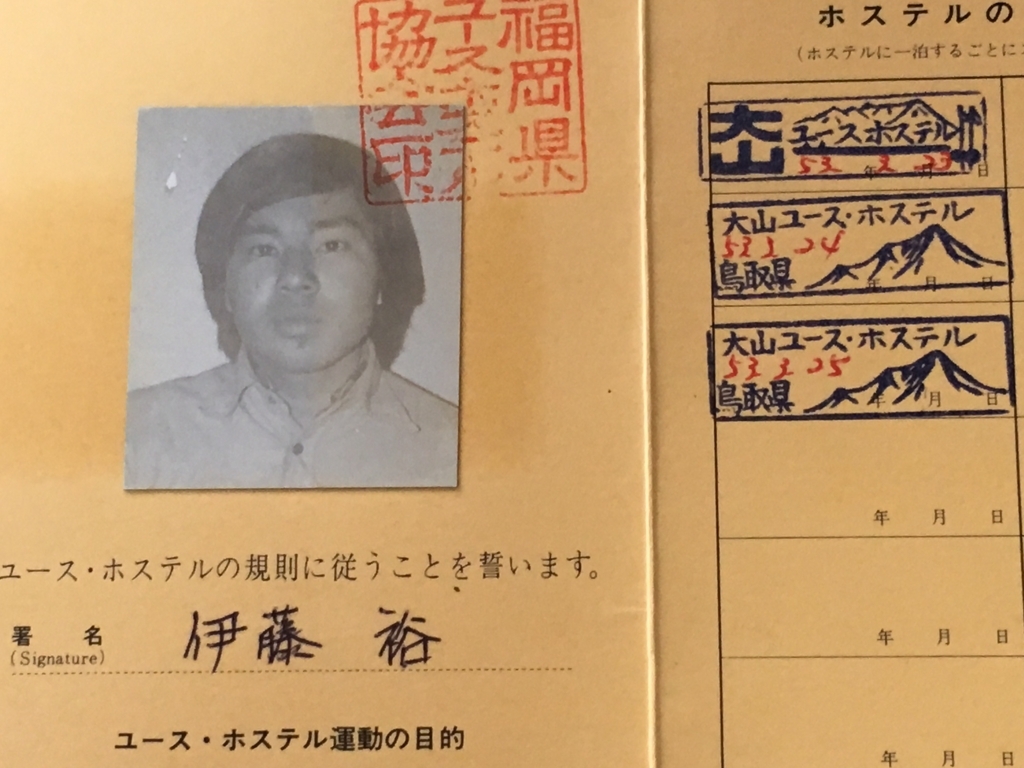 福岡県
ユース
協会印
ユース・ホステルの規則に従うことを誓います。
署名
(Signature)
伊藤 裕
ユース・ホステル運動の目的
ホステルの
(ホステルに一泊するごとに
大山 ユースホステル
53 3 23
年 月 日
大山ユース・ホステル
53 3 24
鳥取県
年 月 日
大山ユース・ホステル
53 3 25
鳥取県
年 月 日
年 月 日
年 月 日
年 月 日